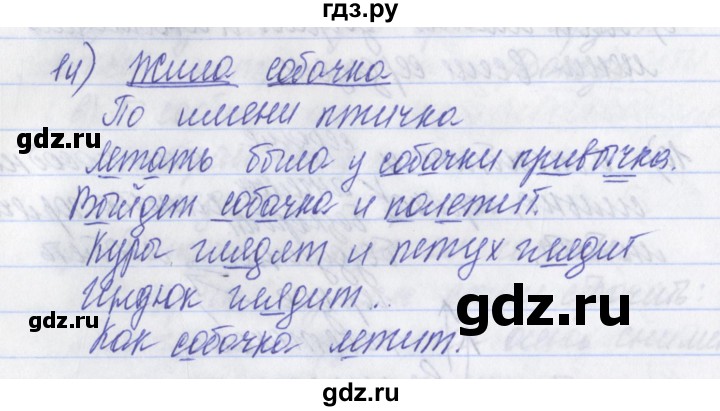 гдз.ру
14) Жила собачка
По имени птичка
Летать была у собачки привычка.
Выйдет собачка и полетит.
Куры глядят и петух глядит
Индюк глядит.
Как собачка летит.
gdz.ru
gdz.ru
gdz.ru
gdz.ru
gdz.ru